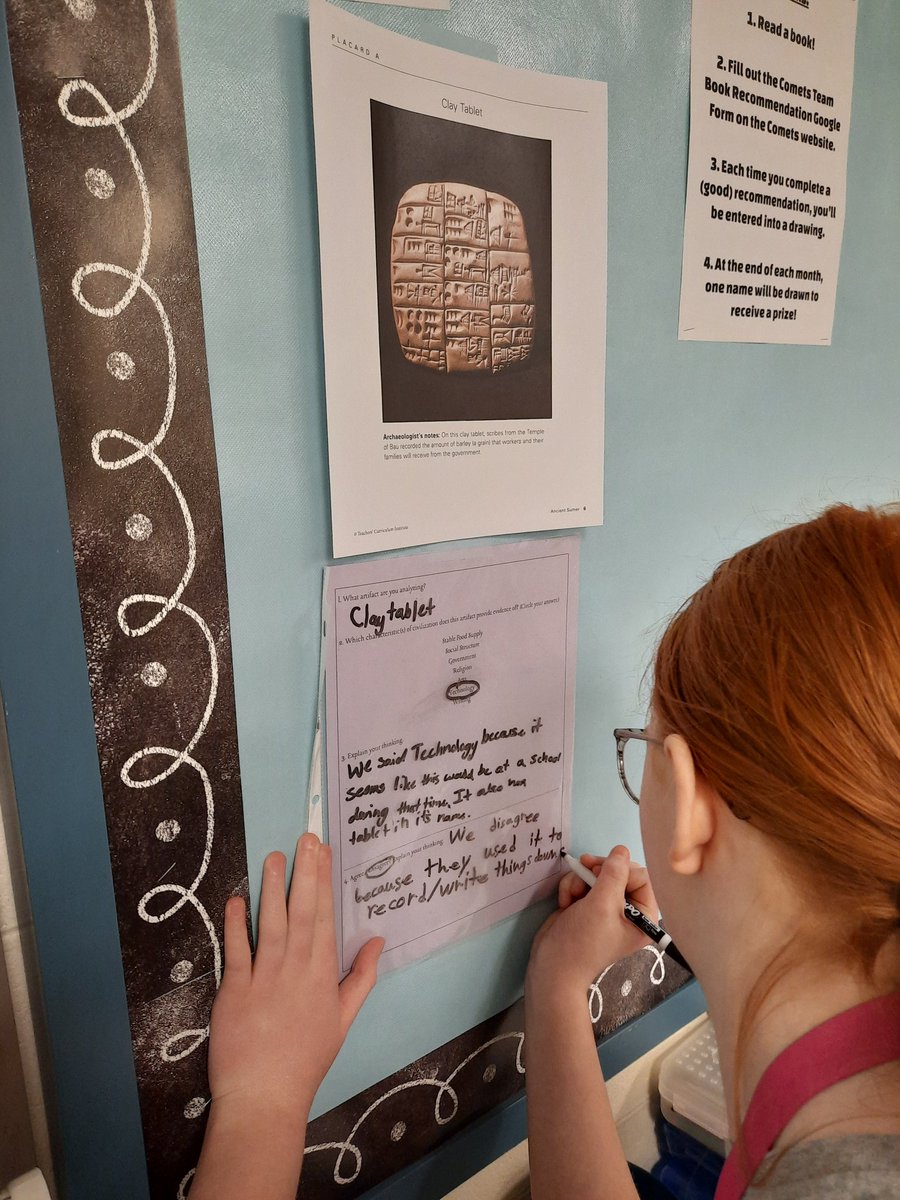 PLACARD A
Clay Tablet
Archaeologist's notes: On this clay tablet, scribes from the Temple
of Bau recorded the amount of barley (a grain) that workers and their
families will receive from the government.
© Teachers' Curriculum Institute
Ancient Sumer 6
1. Read a book!
2. Fill out the Comets Team
Book Recommendation Google
Form on the Comets website.
3. Each time you complete a
(good) recommendation, you'll
be entered into a drawing.
4. At the end of each month,
one name will be drawn to
receive a prize!
1. What artifact are you analyzing?
Clay tablet
2. Which characteristic(s) of civilization does this artifact provide evidence of? (Circle your answer.)
Stable Food Supply
Social Structure
Government
Religion
Technology
Writing
3. Explain your thinking.
We said Technology because it
seems like this would be at a school
during that time. It also has
tablet in it's name.
4. Agree/Disagree? Explain your thinking. We disagree
because they used it to
record/write things down.
EXPO